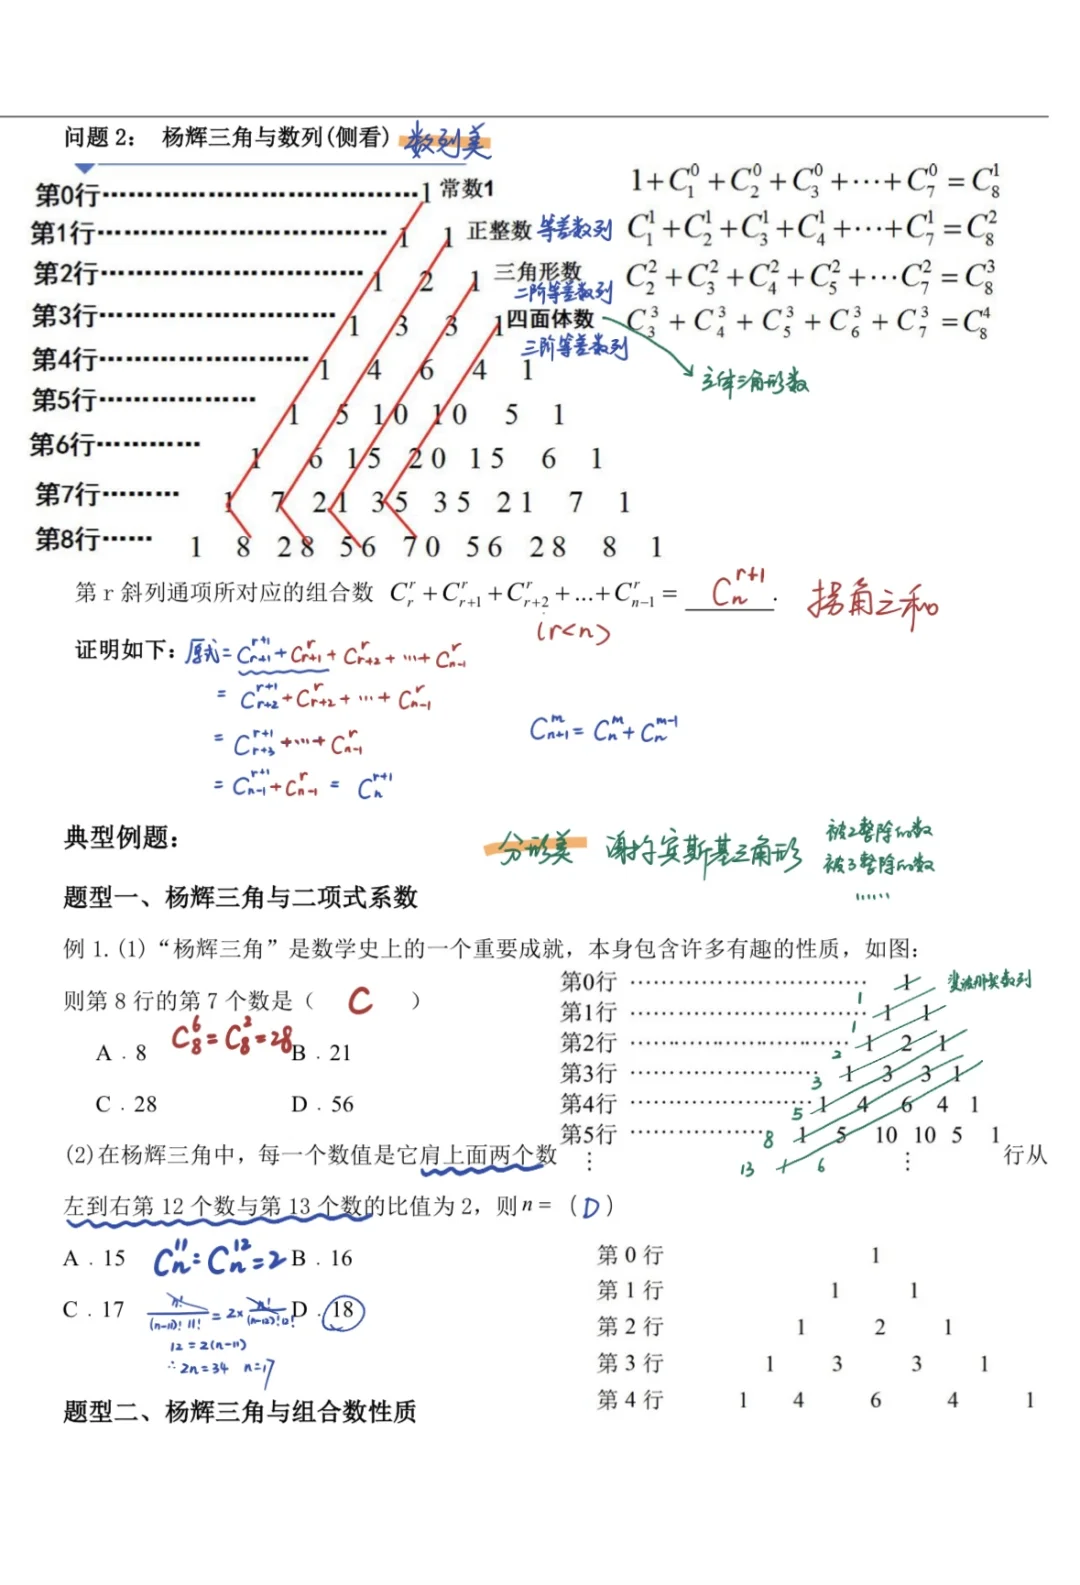 问题 2： 杨辉三角与数列(侧看) 数列美
第0行……………………………1 常数1
第1行………………………… 1 1 正整数 等差数列
第2行……………………… 1 2 1 三角形数
二阶等差数列
第3行…………………… 1 3 3 1 四面体数
三阶等差数列
第4行………………… 1 4 6 4 1
第5行……………… 1 5 10 10 5 1
第6行………… 1 6 15 20 15 6 1
第7行……… 1 7 21 35 35 21 7 1
第8行…… 1 8 28 56 70 56 28 8 1
1+C₁⁰+C₂⁰+C₃⁰+⋯+C₇⁰=C₈¹
C₁¹+C₂¹+C₃¹+C₄¹+⋯+C₇¹=C₈²
C₂²+C₃²+C₄²+C₅²+⋯C₇²=C₈³
C₃³+C₄³+C₅³+C₆³+C₇³=C₈⁴
立体三角形数
第 r 斜列通项所对应的组合数 C_r^r+C_{r+1}^r+C_{r+2}^r+...+C_{n-1}^r= C_n^{r+1}. 拐角之和
(r<n)
证明如下：原式=C_{r+1}^{r+1}+C_{r+1}^r+C_{r+2}^r+⋯+C_{n-1}^r
=C_{r+2}^{r+1}+C_{r+2}^r+⋯+C_{n-1}^r
=C_{r+3}^{r+1}+⋯+C_{n-1}^r
=C_{n-1}^{r+1}+C_{n-1}^r=C_n^{r+1}
C_{n+1}^m=C_n^m+C_n^{m-1}
典型例题：
分形美 谢尔宾斯基三角形 被2整除的数
被3整除的数
……
题型一、杨辉三角与二项式系数
例 1.(1)“杨辉三角”是数学史上的一个重要成就，本身包含许多有趣的性质，如图：
则第 8 行的第 7 个数是（ C ）
C₈⁶=C₈²=28
A．8 B．21
C．28 D．56
第0行 …………………………… 1 斐波那契数列
第1行 ………………………… 1 1 1
第2行 ……………………… 1 1 2 1
第3行 …………………… 2 1 3 3 1
第4行 ………………… 3 1 4 6 4 1
第5行 ……………… 5 8 1 5 10 10 5 1
⋮ 13 6 ⋮
(2)在杨辉三角中，每一个数值是它肩上面两个数 行从
左到右第 12 个数与第 13 个数的比值为 2，则 n =（D）
A．15 B．16
C_n^{11}:C_n^{12}=2
C．17 D．18
n!/(n-11)!11! = 2×n!/(n-12)!12!
12=2(n-11)
∴2n=34 n=17
第 0 行 1
第 1 行 1 1
第 2 行 1 2 1
第 3 行 1 3 3 1
第 4 行 1 4 6 4 1
题型二、杨辉三角与组合数性质